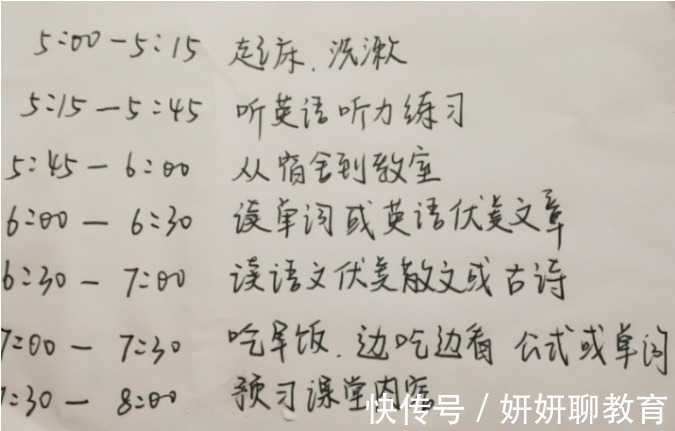 5:00-5:15 起床、洗漱
5:15-5:45 听英语听力练习
5:45-6:00 从宿舍到教室
6:00-6:30 读单词或英语优美文章
6:30-7:00 读语文优美散文或古诗
7:00-7:30 吃早饭、边吃边看 公式或单词
:30-8:00 预习课堂内容
快传号 / 妍妍聊教育